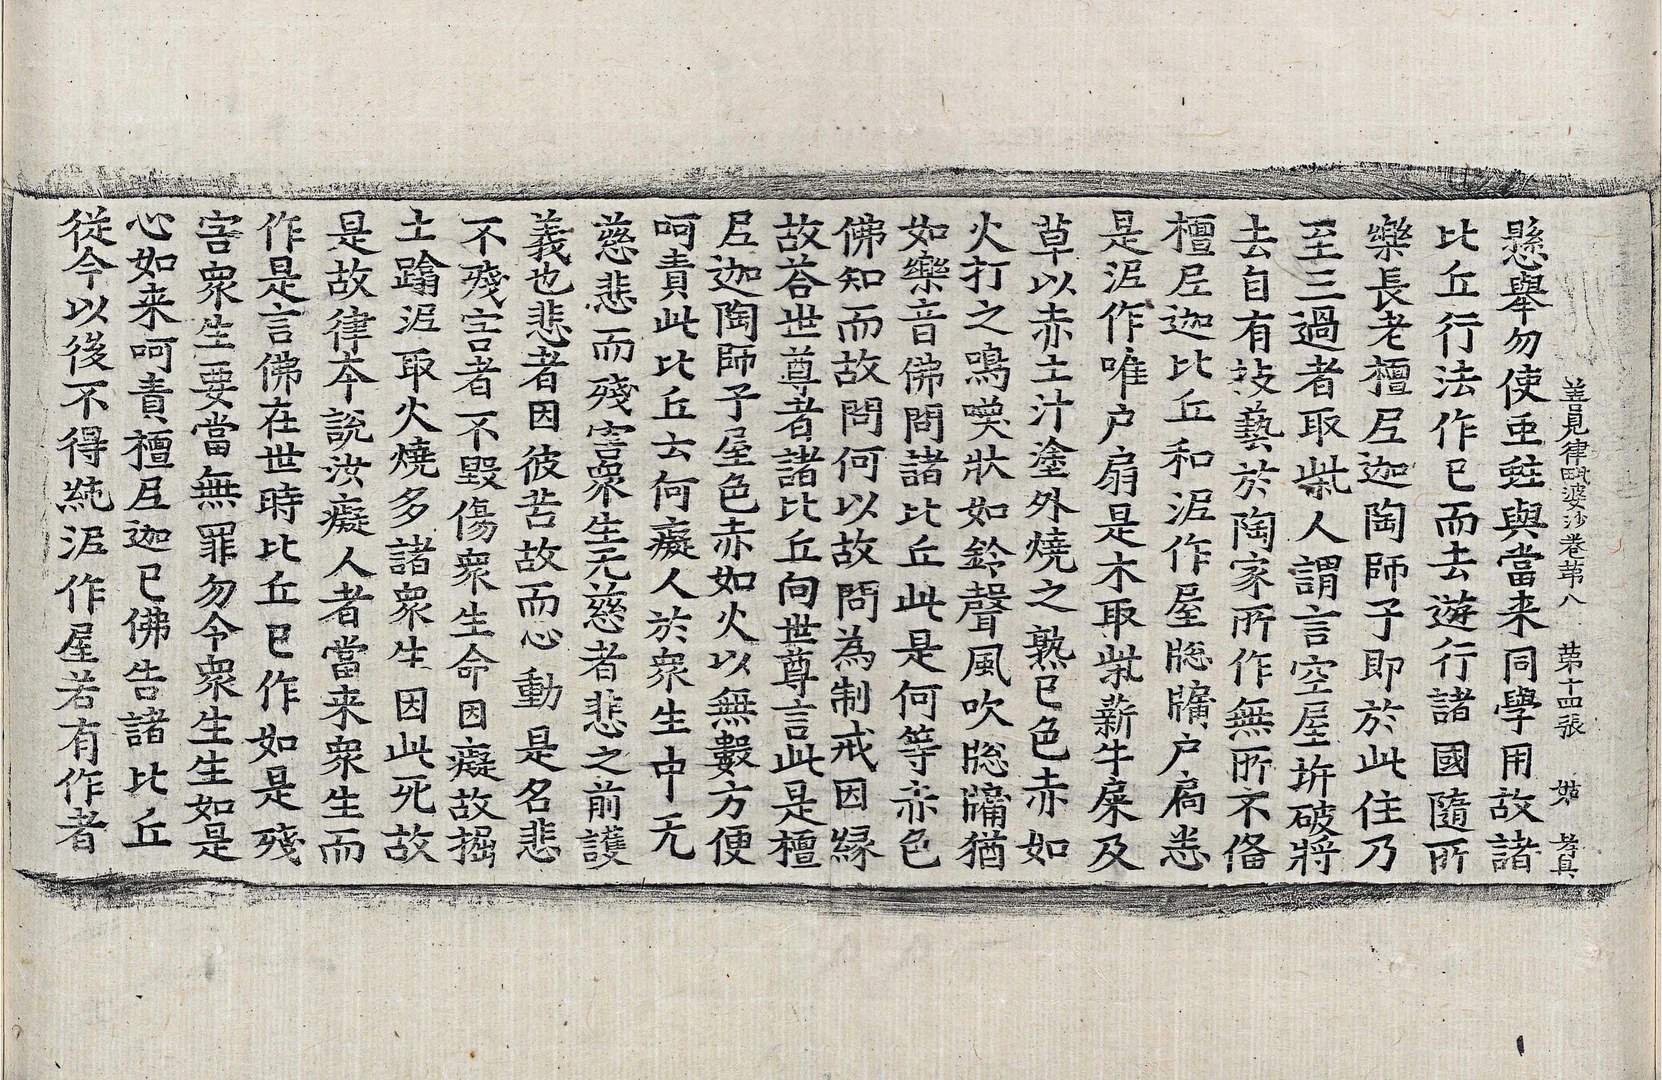 善見律毗婆沙卷苐八 苐十四張 姑
懸舉勿使䖝蛀與當来同學用故諸
比丘行法作已而去遊行諸國隨所
樂長老檀尼迦陶師子即於此住乃
至三過者取柴人謂言空屋坼破將
去自有技藝於陶家所作無所不俻
檀尼迦比丘和泥作屋䆫牖户扃悉
是泥作唯户扇是木取柴薪牛屎及
草以赤土汁塗外燒之熟已色赤如
火打之鳴㗛狀如鈴聲風吹䆫牖猶
如樂音佛問諸比丘此是何等赤色
佛知而故問何以故問為制戒因緣
故荅世尊者諸比丘向世尊言此是檀
尼迦陶師子屋色赤如火以無數方便
呵責此比丘云何癡人於衆生中无
慈悲而殘害衆生无慈者悲之前護
義也悲者因彼苦故而心動是名悲
不殘害者不毀傷衆生命因癡故掘
土蹋泥取火燒多諸衆生因此死故
是故律夲說汝癡人者當来衆生而
作是言佛在世時比丘已作如是殘
害衆生要當無罪勿令衆生生如是
心如来呵責檀尼迦已佛告諸比丘
從今以後不得純泥作屋若有作者